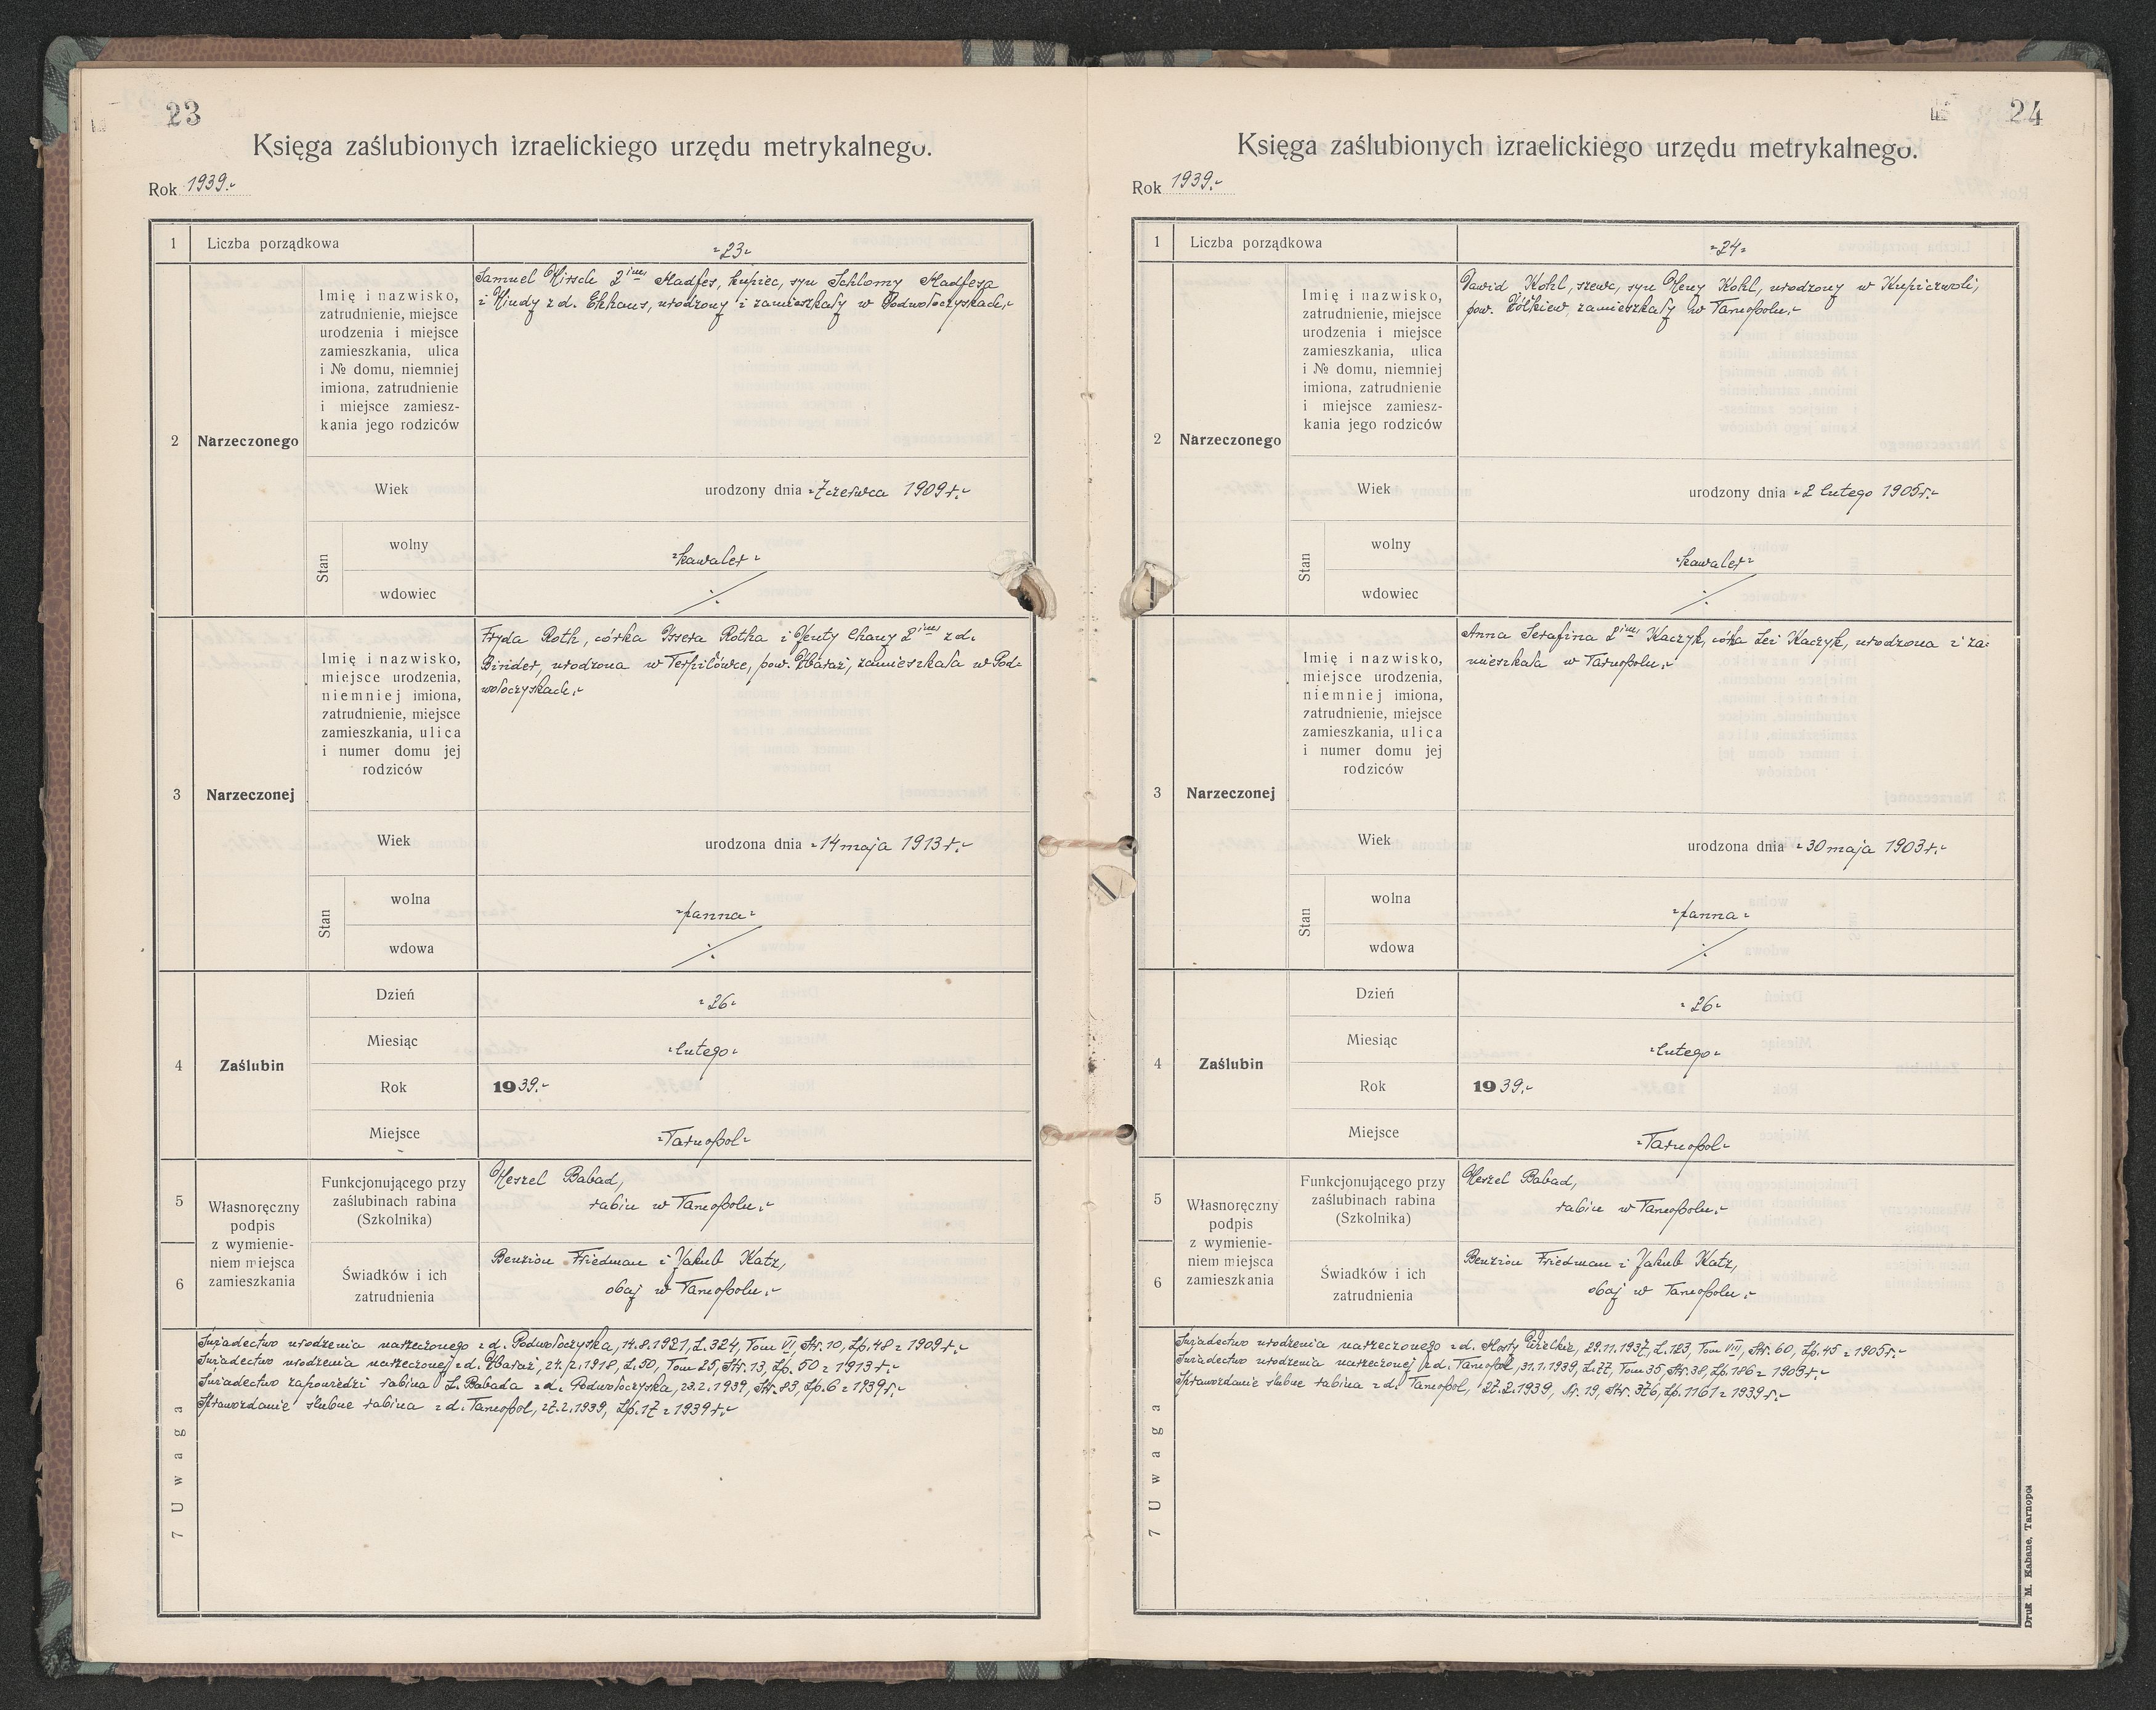 23
Księga zaślubionych izraelickiego urzędu metrykalnego.
Rok 1939.-
1 Liczba porządkowa
-23-
2 Narzeczonego
Imię i nazwisko,
zatrudnienie, miejsce
urodzenia i miejsce
zamieszkania, ulica
i № domu, niemniej
imiona, zatrudnienie
i miejsce zamiesz-
kania jego rodziców
Samuel Hirsch 2 im Hadfes, kupiec, syn Schlomy Hadfesa
i Hindy z d. Ekhaus, urodzony i zamieszkały w Podwołoczyskach.-
Wiek
urodzony dnia -7 czerwca 1909 r.-
Stan
wolny
-kawaler-
wdowiec
3 Narzeczonej
Imię i nazwisko,
miejsce urodzenia,
niemniej imiona,
zatrudnienie, miejsce
zamieszkania, ulica
i numer domu jej
rodziców
Fryda Roth, córka Issera Rotha i Jenty Chany 2 im z d.
Birider, urodzona w Terpiłówce, pow. Zbaraż, zamieszkała w Pod-
wołoczyskach.-
Wiek
urodzona dnia -14 maja 1913 r.-
Stan
wolna
-panna-
wdowa
4 Zaślubin
Dzień
-26-
Miesiąc
-lutego-
Rok
1939.-
Miejsce
-Tarnopol-
5
6
Własnoręczny
podpis
z wymienie-
niem miejsca
zamieszkania
Funkcjonującego przy
zaślubinach rabina
(Szkolnika)
Heszel Babad,
rabin w Tarnopolu.-
Świadków i ich
zatrudnienia
Benzion Friedman i Jakub Katz,
obaj w Tarnopolu.-
7 Uwaga
Świadectwo urodzenia narzeczonego z d. Podwołoczyska, 14.8.1921, L. 324, Tom VI, Str. 10, Lp. 48 z 1909 r.-
Świadectwo urodzenia narzeczonej z d. Zbaraż, 24.2.1918, L. 50, Tom 25, Str. 13, Lp. 50 z 1913 r.-
Świadectwo zapowiedzi rabina L. Babada z d. Podwołoczyska, 23.2.1939, Str. 83, Lp. 6 z 1939 r.-
Sprawozdanie ślubne rabina z d. Tarnopol, 27.2.1939, Lp. 17 z 1939 r.-
24
Księga zaślubionych izraelickiego urzędu metrykalnego.
Rok 1939.-
1 Liczba porządkowa
-24-
2 Narzeczonego
Imię i nazwisko,
zatrudnienie, miejsce
urodzenia i miejsce
zamieszkania, ulica
i № domu, niemniej
imiona, zatrudnienie
i miejsce zamiesz-
kania jego rodziców
Dawid Kohl, szewc, syn Heny Kohl, urodzony w Kupiczwoli,
pow. Żółkiew, zamieszkały w Tarnopolu.-
Wiek
urodzony dnia -2 lutego 1905 r.-
Stan
wolny
-kawaler-
wdowiec
3 Narzeczonej
Imię i nazwisko,
miejsce urodzenia,
niemniej imiona,
zatrudnienie, miejsce
zamieszkania, ulica
i numer domu jej
rodziców
Anna Serafina 2 im Kaczyk, córka Lei Kaczyk, urodzona i za-
mieszkała w Tarnopolu.-
Wiek
urodzona dnia -30 maja 1903 r.-
Stan
wolna
-panna-
wdowa
4 Zaślubin
Dzień
-26-
Miesiąc
-lutego-
Rok
1939.-
Miejsce
-Tarnopol-
5
6
Własnoręczny
podpis
z wymienie-
niem miejsca
zamieszkania
Funkcjonującego przy
zaślubinach rabina
(Szkolnika)
Heszel Babad,
rabin w Tarnopolu.-
Świadków i ich
zatrudnienia
Benzion Friedman i Jakub Katz,
obaj w Tarnopolu.-
7 Uwaga
Świadectwo urodzenia narzeczonego z d. Mosty Wielkie, 29.11.1937, L. 123, Tom VIII, Str. 60, Lp. 45 z 1905 r.-
Świadectwo urodzenia narzeczonej z d. Tarnopol, 31.1.1939, L. 27, Tom 35, Str. 38, Lp. 186 z 1903 r.-
Sprawozdanie ślubne rabina z d. Tarnopol, 27.2.1939, Nr. 19, Str. 376, Lp. 1161 z 1939 r.-
Druk M. Kahane, Tarnopol